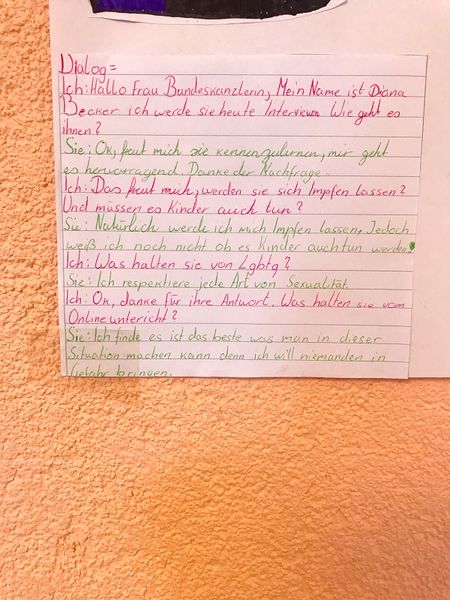 Dialog=
Ich: Hallo Frau Bundeskanzlenn, Mein Name ist Diana
Becker ich werde sie heute Interviewn Wie geht es
ihnen?
Sie: Ok, freut mich sie kennenzulernen, mir geht
es hervorragend Danke der Nachfrage.
Ich: Das freut mich, werden sie sich Impfen lassen?
Und müssen es Kinder auch tun?
Sie: Natürlich werde ich mich Impfen lassen, Jedoch
weiß ich noch nicht ob es Kinder auch tun werden.
Ich: Was halten sie von Lgbtq?
Sie: Ich respektiere jede Art von Sexualität
Ich: Ok, danke für ihre Antwort. Was halten sie vom
Onlineunterricht?
Sie: Ich finde es ist das beste was man in dieser
Situation machen kann denn ich will niemanden in
Gefahr bringen.